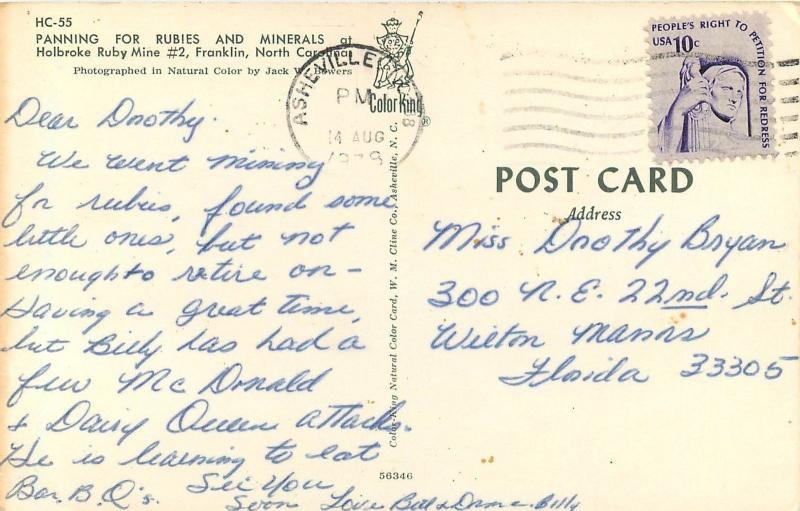 HC-55
PANNING FOR RUBIES AND MINERALS at
Holbroke Ruby Mine #2, Franklin, North Carolina
Photographed in Natural Color by Jack W. Bowers
Color King
®
ASHEVILLE
PM
14 AUG
1978
PEOPLE'S RIGHT TO PETITION FOR REDRESS
USA 10c
POST CARD
Address
Dear Dorothy.
We went mining
for rubies, found some
little ones, but not
enough to retire on –
Having a great time,
but Billy has had a
few McDonald
& Dairy Queen attacks.
He is learning to eat
Bar. B. Q's. See You
Soon Love Bill & Billy
Miss Dorothy Bryan
300 N. E. 22nd. St.
Wilton Manors
Florida 33305
Color-King Natural Color Card, W. M. Cline Co., Asheville, N. C.
56346